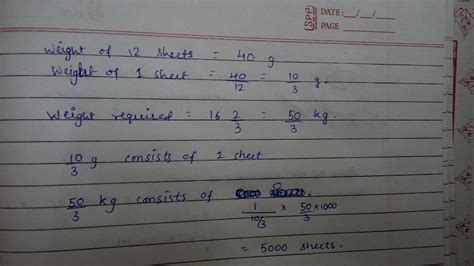 SPP
DATE: __/__/__
PAGE
Weight of 12 sheets = 40 g
Weight of 1 sheet = 40/12 = 10/3 g.
Weight required = 16 2/3 = 50/3 kg.
10/3 g consists of 1 sheet
50/3 kg consists of
1/(10/3) × 50/3 × 1000
= 5000 sheets.